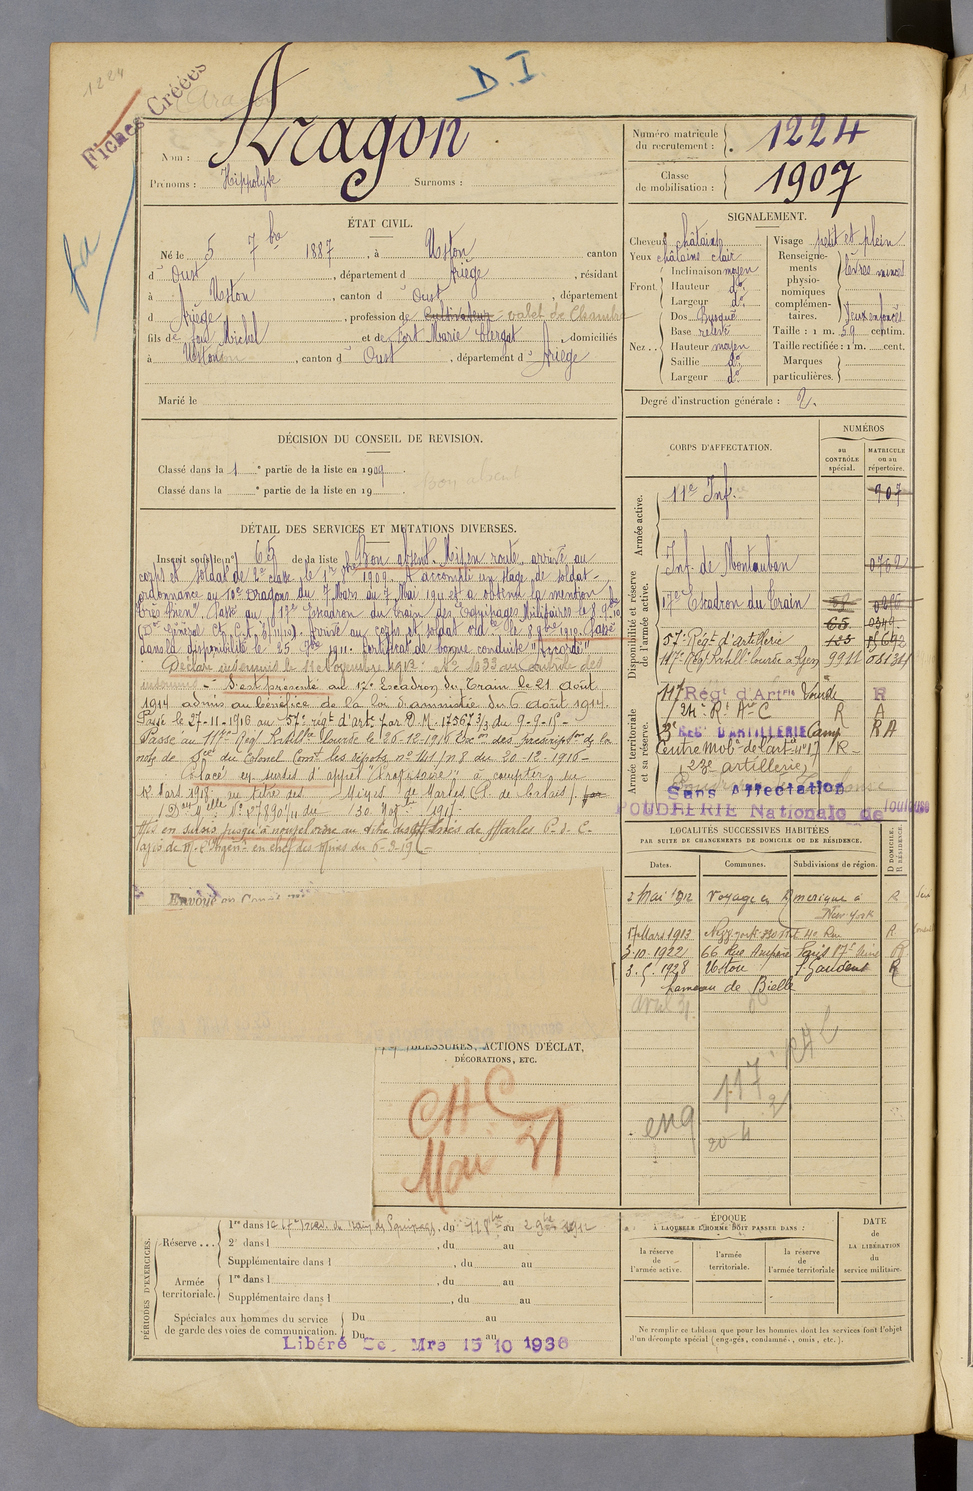 1224
Fiches Créées
D. I.
Nom : Aragon
Prénoms : Hippolyte Surnoms :
Numéro matricule du recrutement : 1224
Classe de mobilisation : 1907
ÉTAT CIVIL.
Né le 5 7bre 1887, à Uston canton
d'Oust, département d Ariège, résidant
à Uston, canton d'Oust, département
d Ariège, profession de Cultivateur valet de Chambre
fils de feu Michel et de Fort Marie Clergat, domiciliés
à Ustou, canton d'Oust, département d'Ariège
Marié le
SIGNALEMENT.
Cheveux châtains
Yeux châtains clair
Front Inclinaison moyen
Hauteur do
Largeur do
Nez Dos Busqué
Base relevé
Hauteur moyen
Saillie do
Largeur do
Visage petit et plein
Renseignements physionomiques complémentaires. lèvres minces
Yeux enfoncés
Taille : 1 m. 59 centim.
Taille rectifiée : 1 m. cent.
Marques particulières.
Degré d'instruction générale : 2.
DÉCISION DU CONSEIL DE REVISION.
Classé dans la 1e partie de la liste en 1909.
Classé dans la e partie de la liste en 19
Bon absent
DÉTAIL DES SERVICES ET MUTATIONS DIVERSES.
Inscrit sous le no 65 de la liste Bon absent. Mis en route, arrivé au
corps et soldat de 2e classe, le 1er 8bre 1909. A accompli un stage de soldat-
ordonnance au 10e Dragons du 7 Mars au 7 Mai 1911 et a obtenu la mention
"très bien". Passé au 17e Escadron du train des Equipages Militaires le 8 9bre 10
Arrivé au corps et soldat ord. le 8 9bre 1910. Passé
dans la disponibilité le 25 7bre 1911. Certificat de bonne conduite "Accordé".
Déclaré insoumis le 12 Novembre 1913. No 1033 au contrôle des
insoumis - S'est présenté au 17e Escadron du Train le 21 Août
1914 admis au bénéfice de la loi d'amnistie du 6 Août 1914.
Passé le 27-11-1916 au 57e régt d'artie par D. M. 17567 3/3 du 9-9-15-
Passé au 117e Régt d'Artillerie lourde le 20-12-1916 des prescriptons de la
note de du Colonel Comt les dépôts no 741/N8 du 20-12-1916-
Placé en sursis d'appel "Propitaire" à compter du
Mars 1918. au titre des Mines de Marles (P. de Calais).
No 87890 du 30 1917-
en sursis jusqu'à nouvel ordre au titre des Mines de Marles P. d. C.
en chef des Mines du
CORPS D'AFFECTATION.
NUMÉROS
au CONTRÔLE spécial.
MATRICULE ou au répertoire.
Armée active.
11e Inf. 907
Disponibilité et réserve de l'armée active.
Inf. de Montauban 0762
17e Escadron du Train
65 0349
57e Régt d'artillerie 125
117e Régt d'Artill. lourde à Lyon 9911
Armée territoriale et sa réserve.
117e Régt d'Artie lourde R
24e R. A. C R A
3e REGt D'ARTILLERIE Camp RA
Centre Mobon de l'artie no 17 R
(23e artillerie)
Sans Affectation
POUDRERIE Nationale de Toulouse
LOCALITÉS SUCCESSIVES HABITÉES
PAR SUITE DE CHANGEMENTS DE DOMICILE OU DE RÉSIDENCE.
Dates. Communes. Subdivisions de région. D DOMICILE. R RÉSIDENCE.
2 Mai 1912 Voyage en Amerique à New-york R
17 Mars 1913 New-york 330 R
3.10.1922 66 Rue Ampère Paris 17e R
3. 5. 1928 Ustou St Gaudens R
hameau de Bielle
avril 31
117
enq
20-4
BLESSURES, ACTIONS D'ÉCLAT,
DÉCORATIONS, ETC.
CHC
Mai 31
PÉRIODES D'EXERCICES.
Réserve ... 1re dans l , du 11 8bre au 2 9bre 1912
2e dans l , du au
Supplémentaire dans l , du au
Armée territoriale. 1re dans l , du au
Supplémentaire dans l , du au
Spéciales aux hommes du service de garde des voies de communication. Du au
Du au
Libéré Mre 15 10 1936
ÉPOQUE
À LAQUELLE L'HOMME DOIT PASSER DANS :
la réserve de l'armée active.
l'armée territoriale.
la réserve de l'armée territoriale
DATE de LA LIBÉRATION du service militaire.
Ne remplir ce tableau que pour les hommes dont les services font l'objet
d'un décompte spécial (engagés, condamnés, omis, etc.).